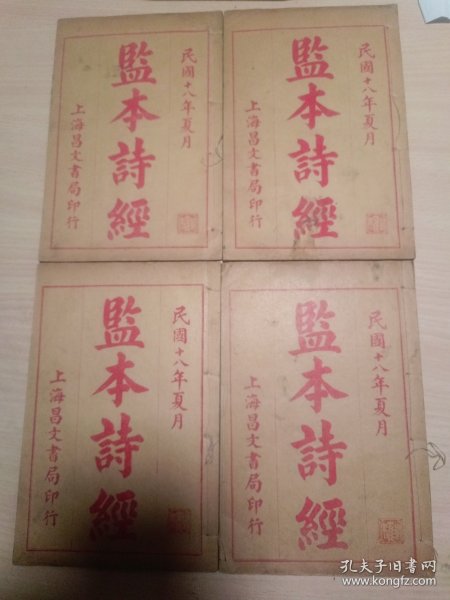 民國十八年夏月
監本詩經
上海昌文書局印行
民國十八年夏月
監本詩經
上海昌文書局印行
民國十八年夏月
監本詩經
上海昌文書局印行
民國十八年夏月
監本詩經
上海昌文書局印行
孔夫子旧书网
www.kongfz.com